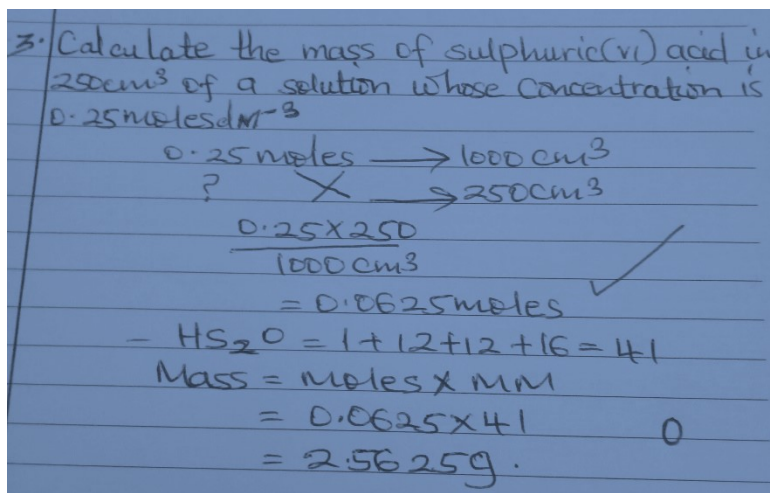 3. Calculate the mass of sulphuric(vi) acid in
250cm³ of a solution whose concentration is
0.25molesdm⁻³
0.25 moles → 1000 cm³
? → 250cm³
0.25 x 250
1000 cm³
= 0.0625moles
- HS₂O = 1+12+12+16 = 41
Mass = moles x MM
= 0.0625 x 41
0
= 2.5625g.